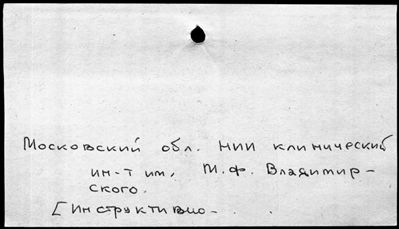 Московский обл. НИИ клинический
ин-т им. М.Ф. Владимир-
ского.
[Инструктивно-..